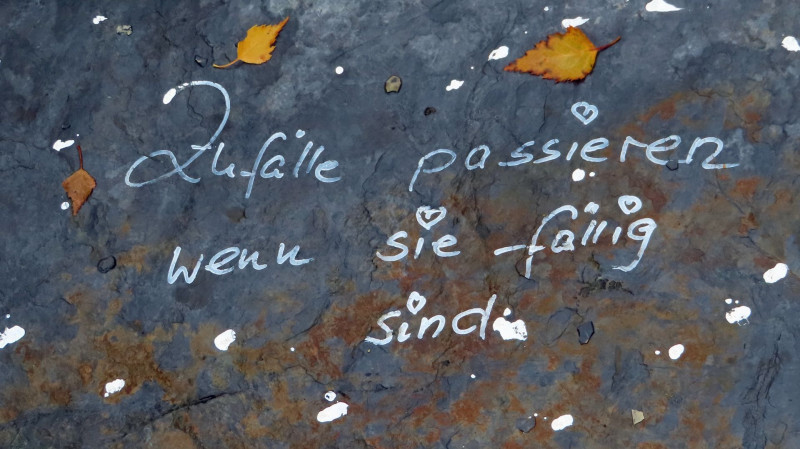 Zufälle passieren
wenn sie fällig
sind.